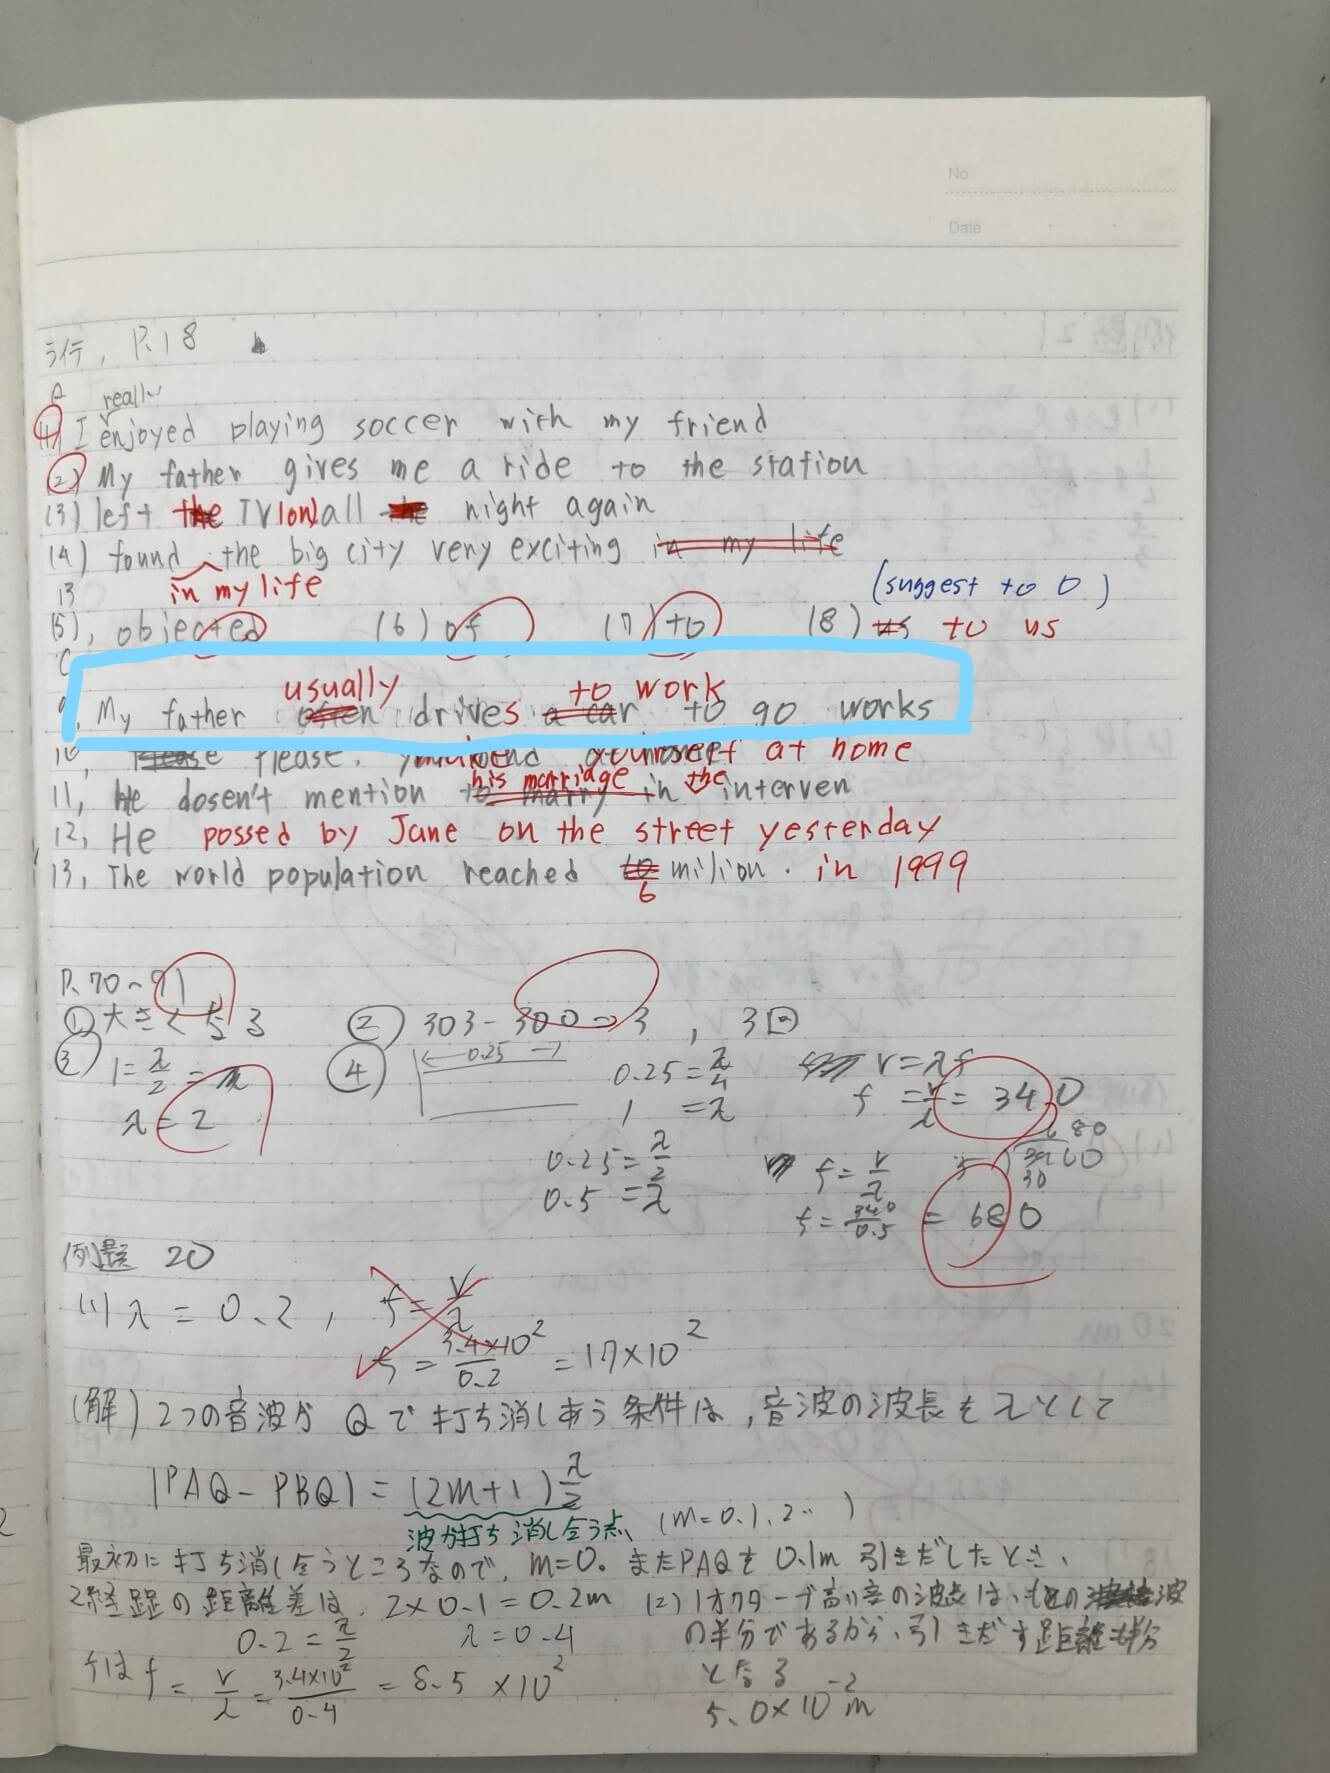 No
Date
ライティ, P.18
A
really
(1) I enjoyed playing soccer with my friend
(2) My father gives me a ride to the station
(3) left the TV(on)all the night again
(4) found the big city very exciting in my life
in my life
B
(suggest to O)
(5), objected (6) of (7) to (8) us to us
C
usually to work
9, My father often drives a car to go works
10, Please Please. yourself at home
his marriage the
11, He dosen't mention to marry in interven
12, He possed by Jane on the street yesterday
13, The world population reached 10 milion. in 1999
6
P.70~71
① 大きくなる ② 303-300=3 , 3回
③ 1=λ/2 ④ ←0.25→ 0.25=λ/4 v=λf
λ=2 1=λ f=v/λ=340
0.25=λ/2 f=v/λ
0.5=λ f=340/0.5=680
680
30
例題 20
(1) λ=0.2, f=v/λ
f=3.4×10²/0.2=17×10²
(解) 2つの音波が Qで打ち消しあう条件は,音波の波長をλとして
|PAQ-PBQ|=(2m+1)λ/2
波が打ち消し合う点 (m=0.1.2‥)
最初に打ち消し合うところなので, m=0。またPAQを0.1m 引きだしたとき、
2経路の距離差は, 2×0.1=0.2m (2) 1オクターブ高い音の波長は、もとの波
0.2=λ/2 λ=0.4 の半分であるから、引きだす距離も半分
f=v/λ=3.4×10²/0.4=8.5×10² となる
5.0×10⁻²m